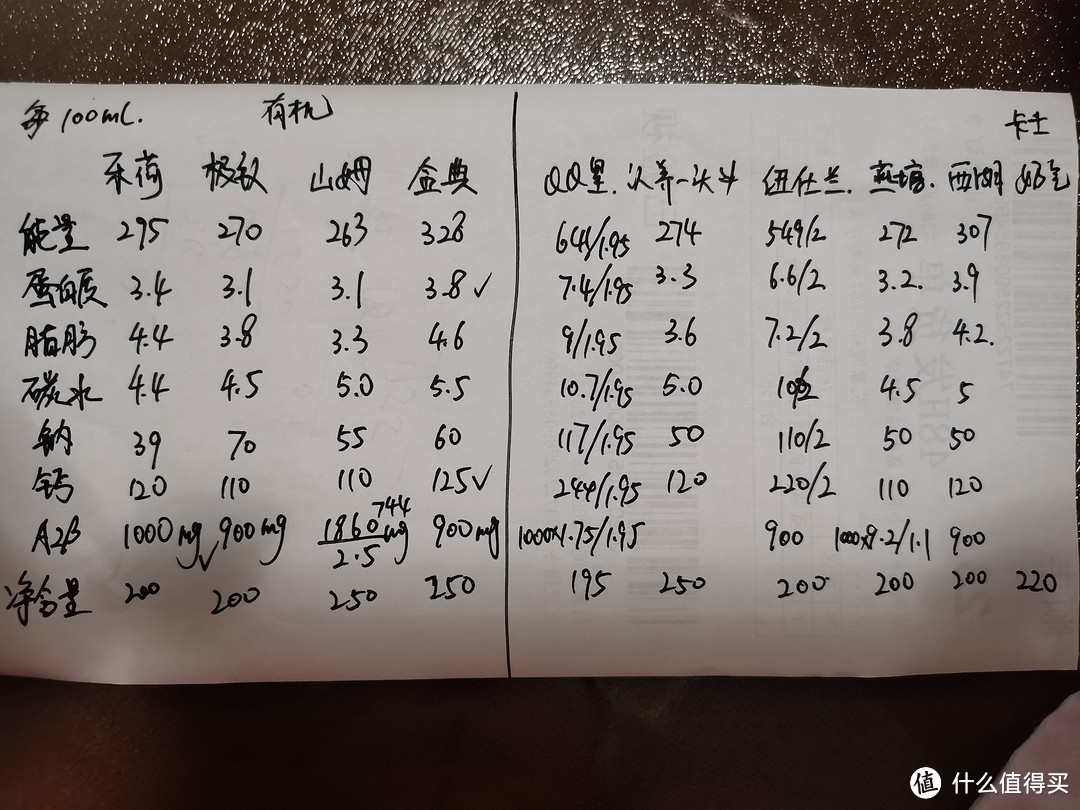 每100mL. 有机 卡士
禾荷 极致 山姆 金典 QQ星. 认养一头牛 纽仕兰. 燕塘. 西湖
能量 295 270 263 328 644/1.95 274 549/2 272 307
蛋白质 3.4 3.1 3.1 3.8✓ 7.4/1.95 3.3 6.6/2 3.2. 3.9
脂肪 4.4 3.8 3.3 4.6 9/1.95 3.6 7.2/2 3.8 4.2.
碳水 4.4 4.5 5.0 5.5 10.7/1.95 5.0 4.5 5
钠 39 70 55 60 117/1.95 50 110/2 50 50
钙 120 110 110 125✓ 244/1.95 120 220/2 110 120
A2β 1000mg✓ 900mg 1860/2.5 744mg 900mg 1000×1.75/1.95 900 1000×9.2/1.1 900
净含量 200 200 250 250 195 250 200 200 200 220
值 什么值得买